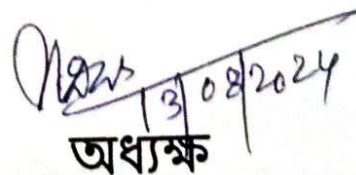 13/08/2024
অধ্যক্ষ